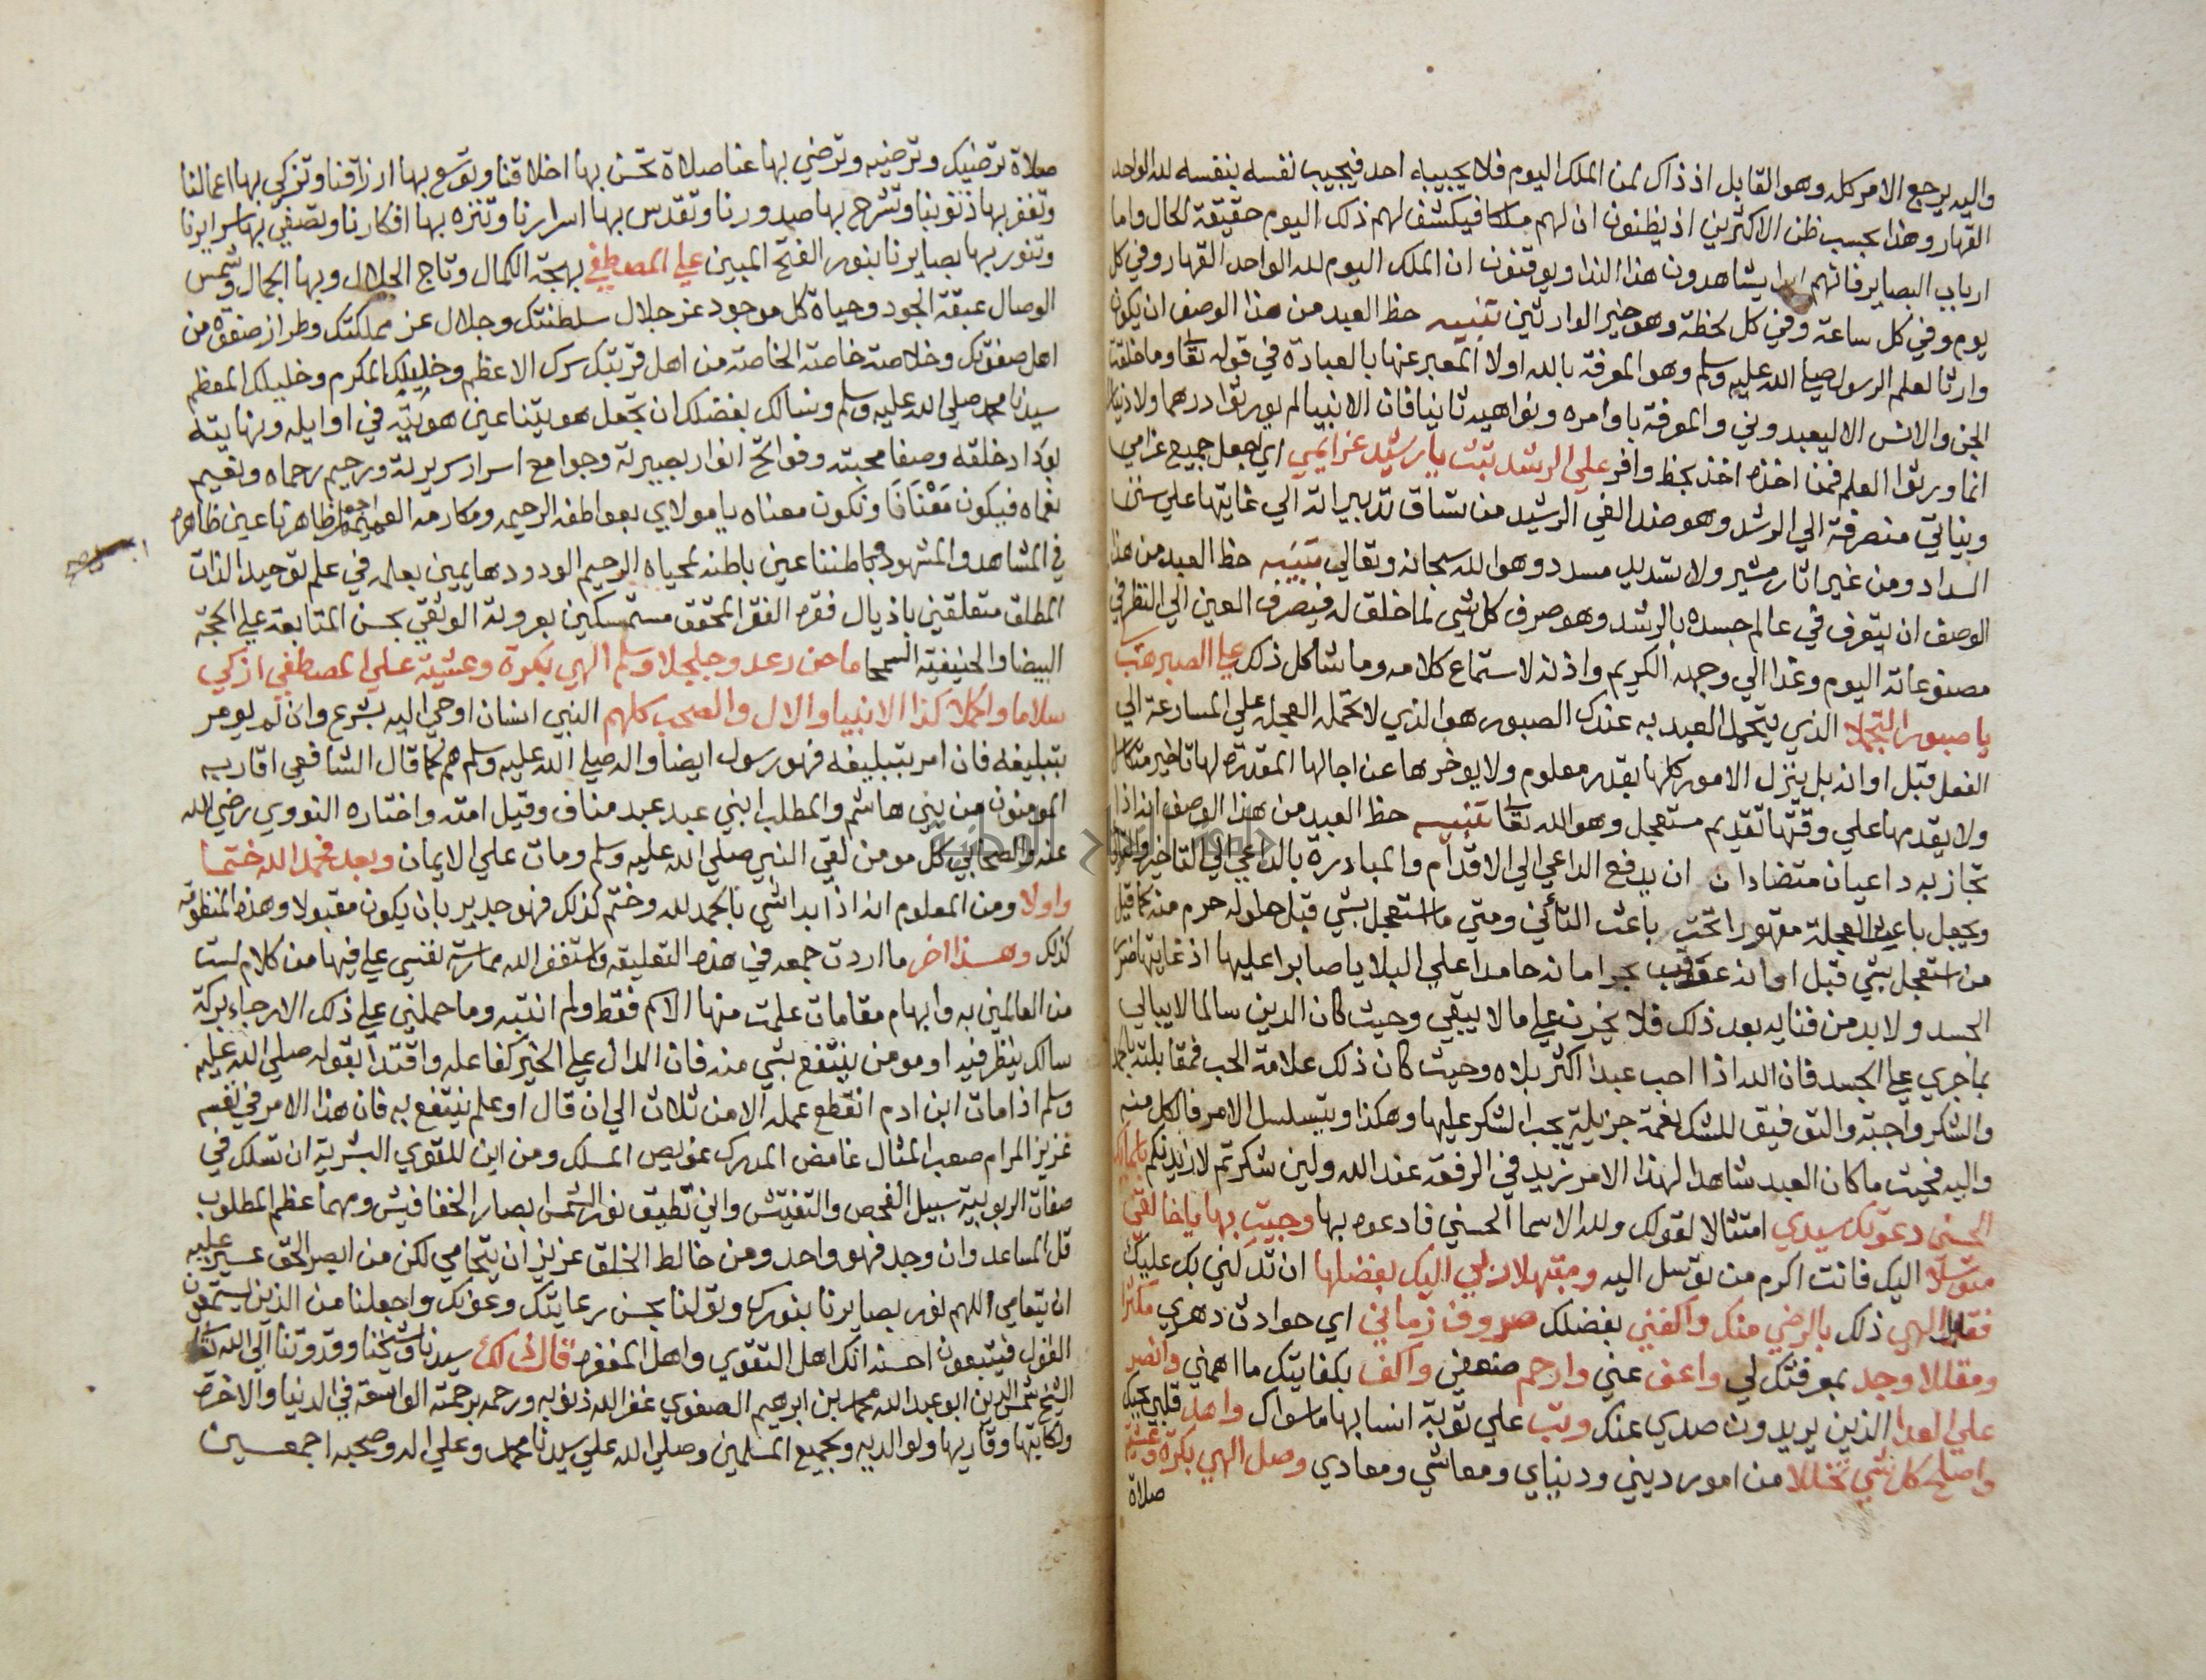 واليه يرجع الامر كله وهو القايل اذ ذاك لمن الملك اليوم فلا يجيبه احد فيجيب نفسه بنفسه لله الواحد
القهار وهذا بحسب ظن الاكثرين اذ يظنون ان لهم ملكا فيكشف لهم ذلك اليوم حقيقة الحال واما
ارباب البصاير فانهم ابدا يشاهدون هذا الندا ويوقنون ان الملك اليوم لله الواحد القهار وفي كل
يوم وفي كل ساعة وفي كل لحظة وهو خير الوارثين تنبيه حظ العبد من هذا الوصف ان يكون
وارثا لعلم الرسول صلي الله عليه وسلم وهو المعرفة بالله اولا المعبر عنها بالعبادة في قوله تعا وما خلقت
الجن والانس الا ليعبدوني والمعرفة باوامره ونواهيه ثانيا فان الانبيا لم يورثوا درهما ولا دينارا
انما ورثوا العلم فمن اخذه اخذ بحظ وافر علي الرشد ثبت يا رشيد عزايمي اي اجعل جميع عزامي
ونياتي منصرفة الي الرشد وهو ضد الغي الرشيد من تساق تدبيراته الي غايتها علي سنن
السداد ومن غير اشار مشير ولا تسديد مسدد وهو الله سبحانه وتعالي تنبيه حظ العبد من هذا
الوصف ان يتعرف في عالم جسده بالرشد وهو صرف كل شي لما خلق له فيصرف العين الي النظر في
مصنوعاته اليوم وغدا الي وجهه الكريم واذنه لاستماع كلامه وما شاكل ذلك علي الصبر هب
يا صبور التجملا الذي يتحمل العبد به عندك الصبور هو الذي لا تحمله العجلة علي المسارعة الي
الفعل قبل اوانه بل ينزل الامور كلها بقدر معلوم ولا يوخرها عن اجالها المقدرة لها تاخير متكاسل
ولا يقدمها علي وقتها تقديم مستعجل وهو الله تعا تنبيه حظ العبد من هذا الوصف انه اذا
تجاذبه داعيان متضادان ان يدفع الداعي الي الاقدام والمبادرة بالداعي الي التاخير
ويجعل باعث العجلة مقهورا تحت باعث التأني ومتي ما استعجل بشي قبل حلوله حرم منه كما قيل
من استعجل بشي قبل اوانه عوقب بحرمانه حامدا علي البلا يا صابرا عليها اذ غايتها ضر
الجسد ولا بد من فنايه بعد ذلك فلا يحزن علي ما لا يبقي وحيث كان الدين سالما لا يبالي
بما جري علي الجسد فان الله اذا احب عبدا اكثر بلاه وحيث كان ذلك علامة الحب فمقابلته بالحمد
والشكر واجبة والتوفيق للشكر نعمة جزيلة يجب الشكر عليها وهكذا ويتسلسل الامر فالكل منه
واليه فحيث ما كان العبد شاهدا لهذا الامر نزيد في الرفعة عند الله ولين شكرتم لازيدنكم
الحسني دعوتك سيدي امتثالا لقولك ولله الاسما الحسني فادعوه بها وجيت بها يا خالقي
متوسلا اليك فانت اكرم من توسل اليه ومبتهلا ربي اليك بفضلها ان تدلني بك عليك
فقابل الهي ذلك بالرضي منك واكفني بفضلك صروف زماني اي حوادث دهري مكثرا
ومقللا وجد بمعرفتك لي واعف عني وارحم ضعفي واكف بكفايتك ما اهمني وانصر
علي العدا الذين يريدون صدي عنك وتب علي توبة انسا بها ما سواك واهد قلبي
واصلح كل شي تخللا من امور ديني ودنياي ومعاشي ومعادي وصل الهي بكرة وعشية
صلاة
صلاة ترضيك وترضيه وترضي بها عنا صلاة تحسن بها اخلاقنا وتوسع بها ارزاقنا وتزكي بها اعمالنا
وتغفر بها ذنوبنا وتشرح بها صدورنا وتقدس بها اسرارنا وتنزه بها افكارنا وتصفي بها سرايرنا
وتنور بها بصايرنا بنور الفتح المبين علي المصطفي بهجة الكمال وتاج الجلال وبها الجمال وشمس
الوصال عبقة الجود وحياة كل موجود عز جلال سلطنتك وجلال عز مملكتك وطراز صفوة من
اهل صفوتك وخلاصة خاصة الخاصة من اهل قربتك سرك الاعظم وحبيبك المكرم وخليلك المعظم
سيدنا محمد صلي الله عليه وسلم ونسالك بفضلك ان تجعل هويتنا عين هويته في اوايله ونهايته
بوداد خلقه وصفا محبته وفواتح انوار بصيرته وجوامع اسرار سريرته ورحيم رحماه ونعيم
نعماه فيكون مَعْنَانَا وتكون معناه يا مولاي بعواطفه الرحيمه ومكارمه ظاهرنا عين ظاهره
في المشاهد والمشهود وباطننا عين باطنه لمحياه الرحيم الودود هايمين بعلمه في علم توحيد الذات
المطلق متعلقين باذيال فقره الفقر المحقق مستمسكين بعروته الوثقي بحسن المتابعة علي المحجة
البيضا والحنيفية السمحا ما حن رعد وجلجلا وسلم الهي بكرة وعشية علي المصطفي ازكي
سلاما واكملا كذا الانبيا والال والصحب كلهم النبي انسان اوحي اليه بشرع وان لم يومر
بتبليغه فان امر بتبليغه فهو رسول ايضا واله صلي الله عليه وسلم هم كما قال الشافعي اقاربه
المومنون من بني هاشم والمطلب ابني عبد مناف وقيل امته واختاره النووي رضي الله
عنه والصحابي كل مومن لقي النبي صلي الله عليه وسلم ومات علي الايمان وبعد فحمد الله ختما
واولا ومن المعلوم انه اذا بدا شي بالحمد لله وختم كذلك فهو جدير بان يكون مقبولا وهذه المنظومة
كذلك وهذا اخر ما اردت جمعه في هذه التعليقة واستغفر الله مما رسمته نفسي علي فيها من كلام لست
من العالمين به وابهام مقامات علمت منها الاسم فقط ولم انتبه وما حملني علي ذلك الا رجاء بركة
سالك ينظر فيه او مومن ينتفع بشي منه فان الدال علي الخير كفاعله واقتدا بقوله صلي الله عليه
وسلم اذا مات ابن ادم انقطع عمله الا من ثلاث الي ان قال او علم ينتفع به فان هذا الامر في نفسه
عزيز المرام صعب المثال غامض المدرك عويص المسلك ومن اين للقوي البشرية ان تسلك في
صفات الربوبية سبيل الفحص والتفتيش واني تطيق نور الشمس ابصار الخفافيش ومهما عظم المطلوب
قل المساعد وان وجد فهو واحد ومن خالط الخلق عزيز ان يتحامي لكن من ابصر الحق عسير عليه
ان يتعامي اللهم نور بصايرنا بنورك وتولنا بحسن رعايتك وعونك واجعلنا من الذين يستمعون
القول فيتبعون احسنه انك اهل التقوي واهل المغفره قال سيدنا وشيخنا وقدوتنا الي الله تعا
الشيخ شمس الدين ابو عبد الله محمد بن ابرهيم الصفوي غفر الله ذنوبه ورحمه برحمته الواسعة في الدنيا والاخرة
ولكاتبها وقاريها ولوالديه وجميع المسلمين وصلي الله علي سيدنا محمد وعلي اله وصحبه اجمعين